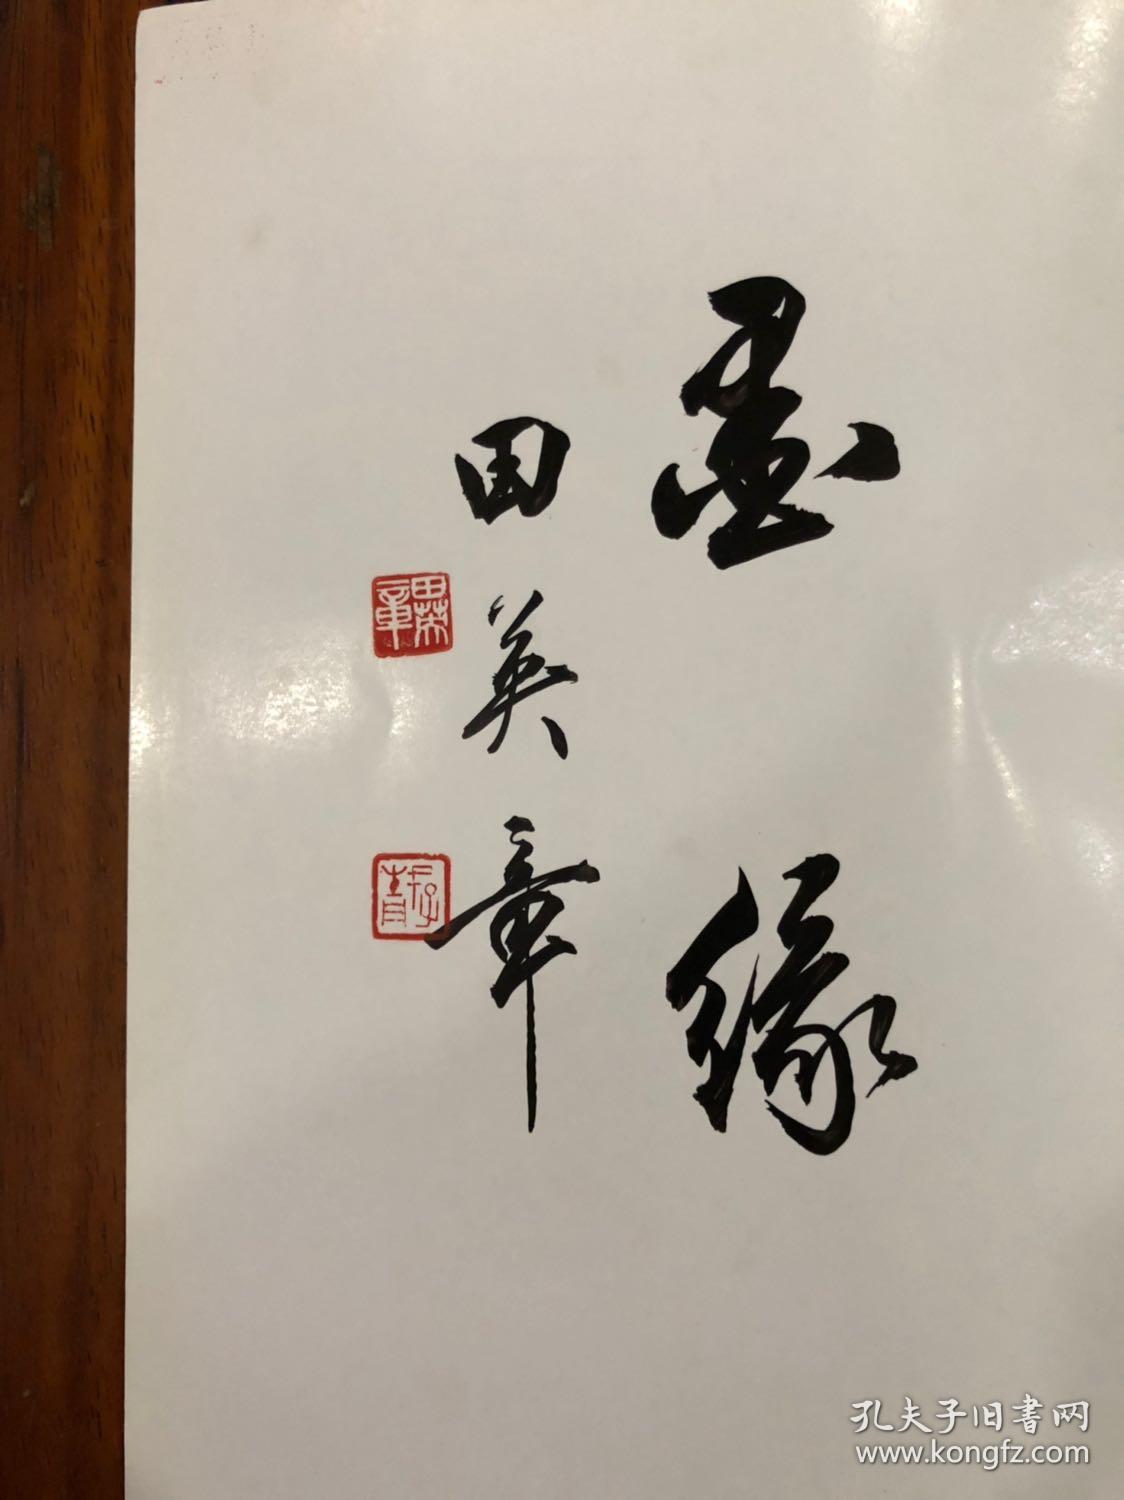 墨缘
田英章
田英章
存青
孔夫子旧書网
www.kongfz.com